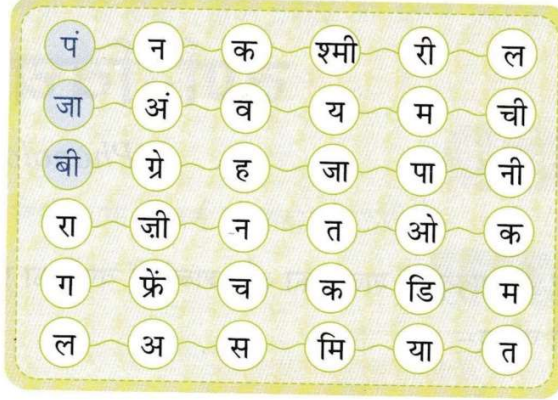 पं न क श्मी री ल
जा अं व य म ची
बी ग्रे ह जा पा नी
रा ज़ी न त ओ क
ग फ्रें च क डि म
ल अ स मि या त